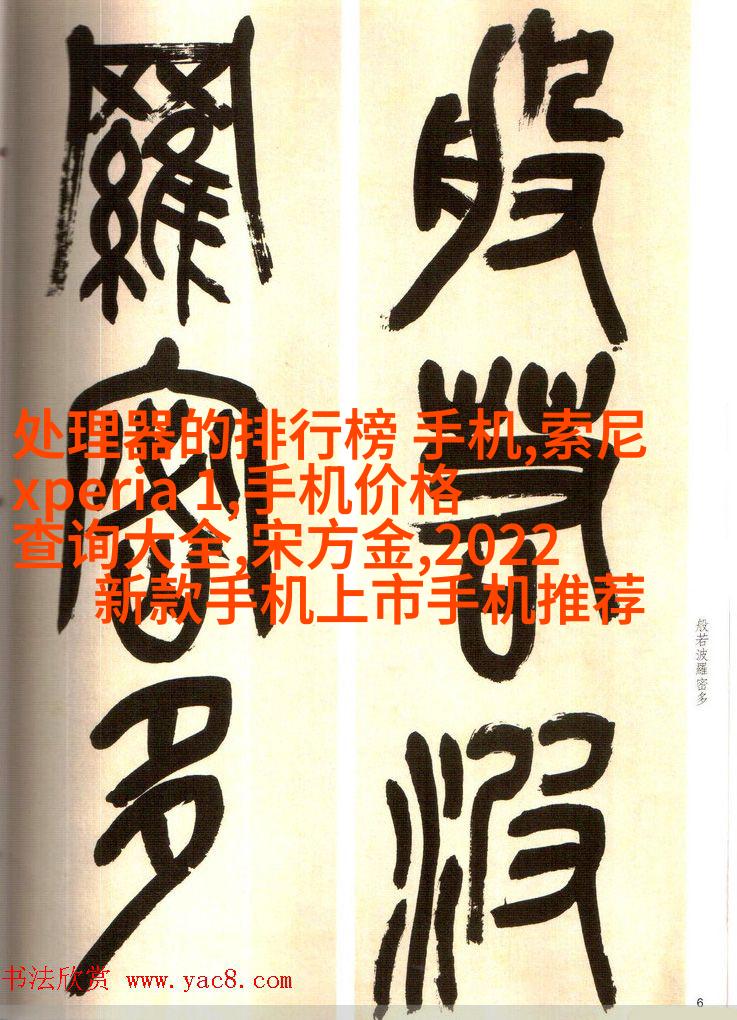 般若波
羅密多
处理器的排行榜 手机,索尼
xperia 1,手机价格
查询大全,宋方金,2022
新款手机上市手机推荐
般若波羅密多
书法欣赏 www.yac8.com
6